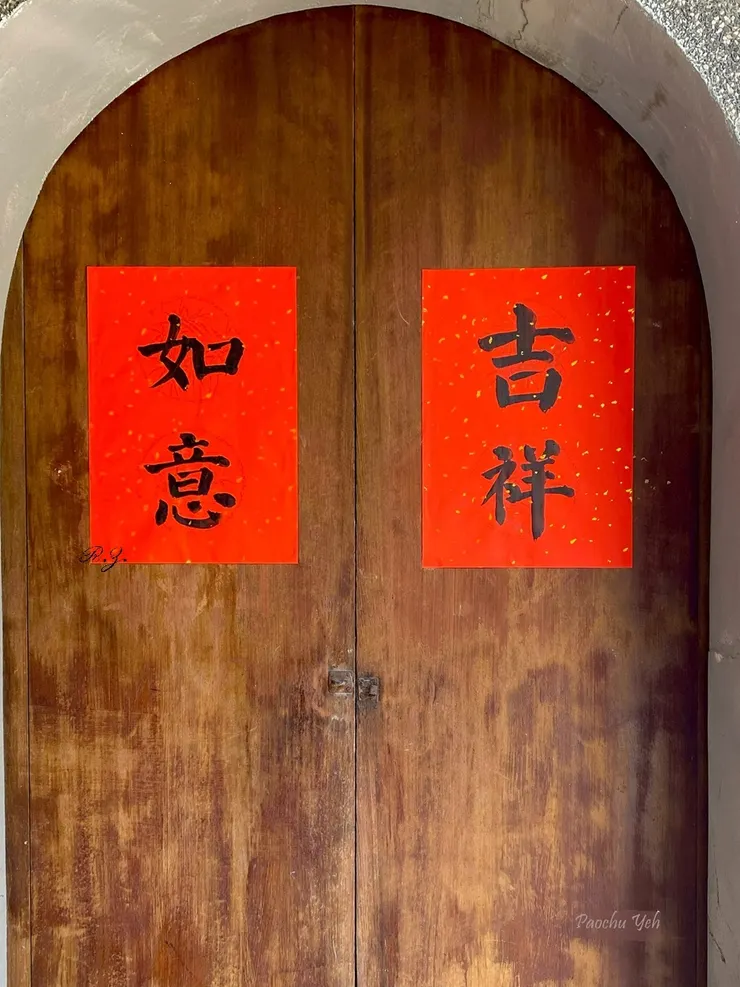 吉祥
如意
P.Y.
Paochu Yeh